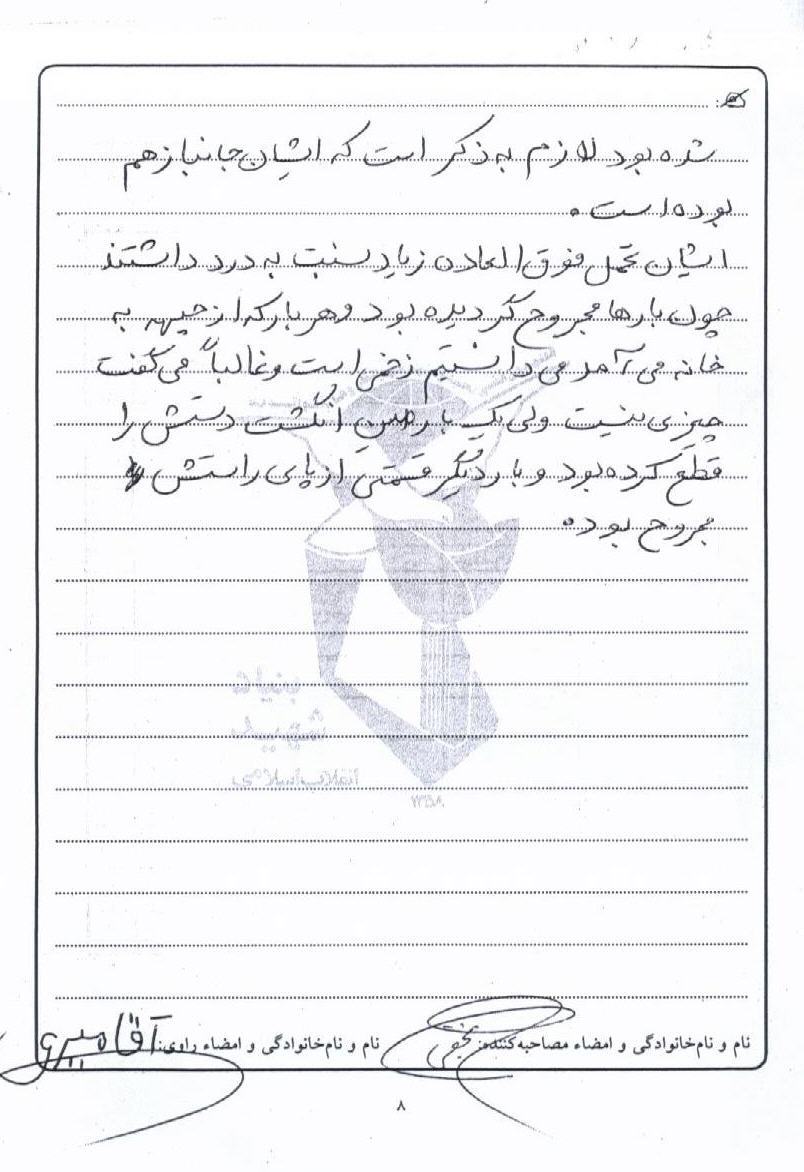 شده بود لازم به ذکر است که ایشان جانباز هم
بوده است.
ایشان تحمل فوق العاده زیاد نسبت به درد داشتند
چون بارها مجروح گردیده بود و هر بار که از جبهه به
خانه می آمد می دانستیم زخمی است و غالباً می گفت
چیزی نیست ولی یک بار همین انگشت دستش را
قطع کرده بود و بار دیگر قسمتی از پای راستش
مجروح بود.
بنیاد
شهید
انقلاب اسلامی
۱۳۵۸
نام و نام‌خانوادگی و امضاء مصاحبه‌کننده: نجفی
نام و نام‌خانوادگی و امضاء راوی: آقا میری
۸